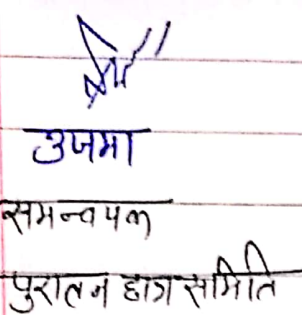 उजमा
समन्वयक
पुरातन छात्र समिति